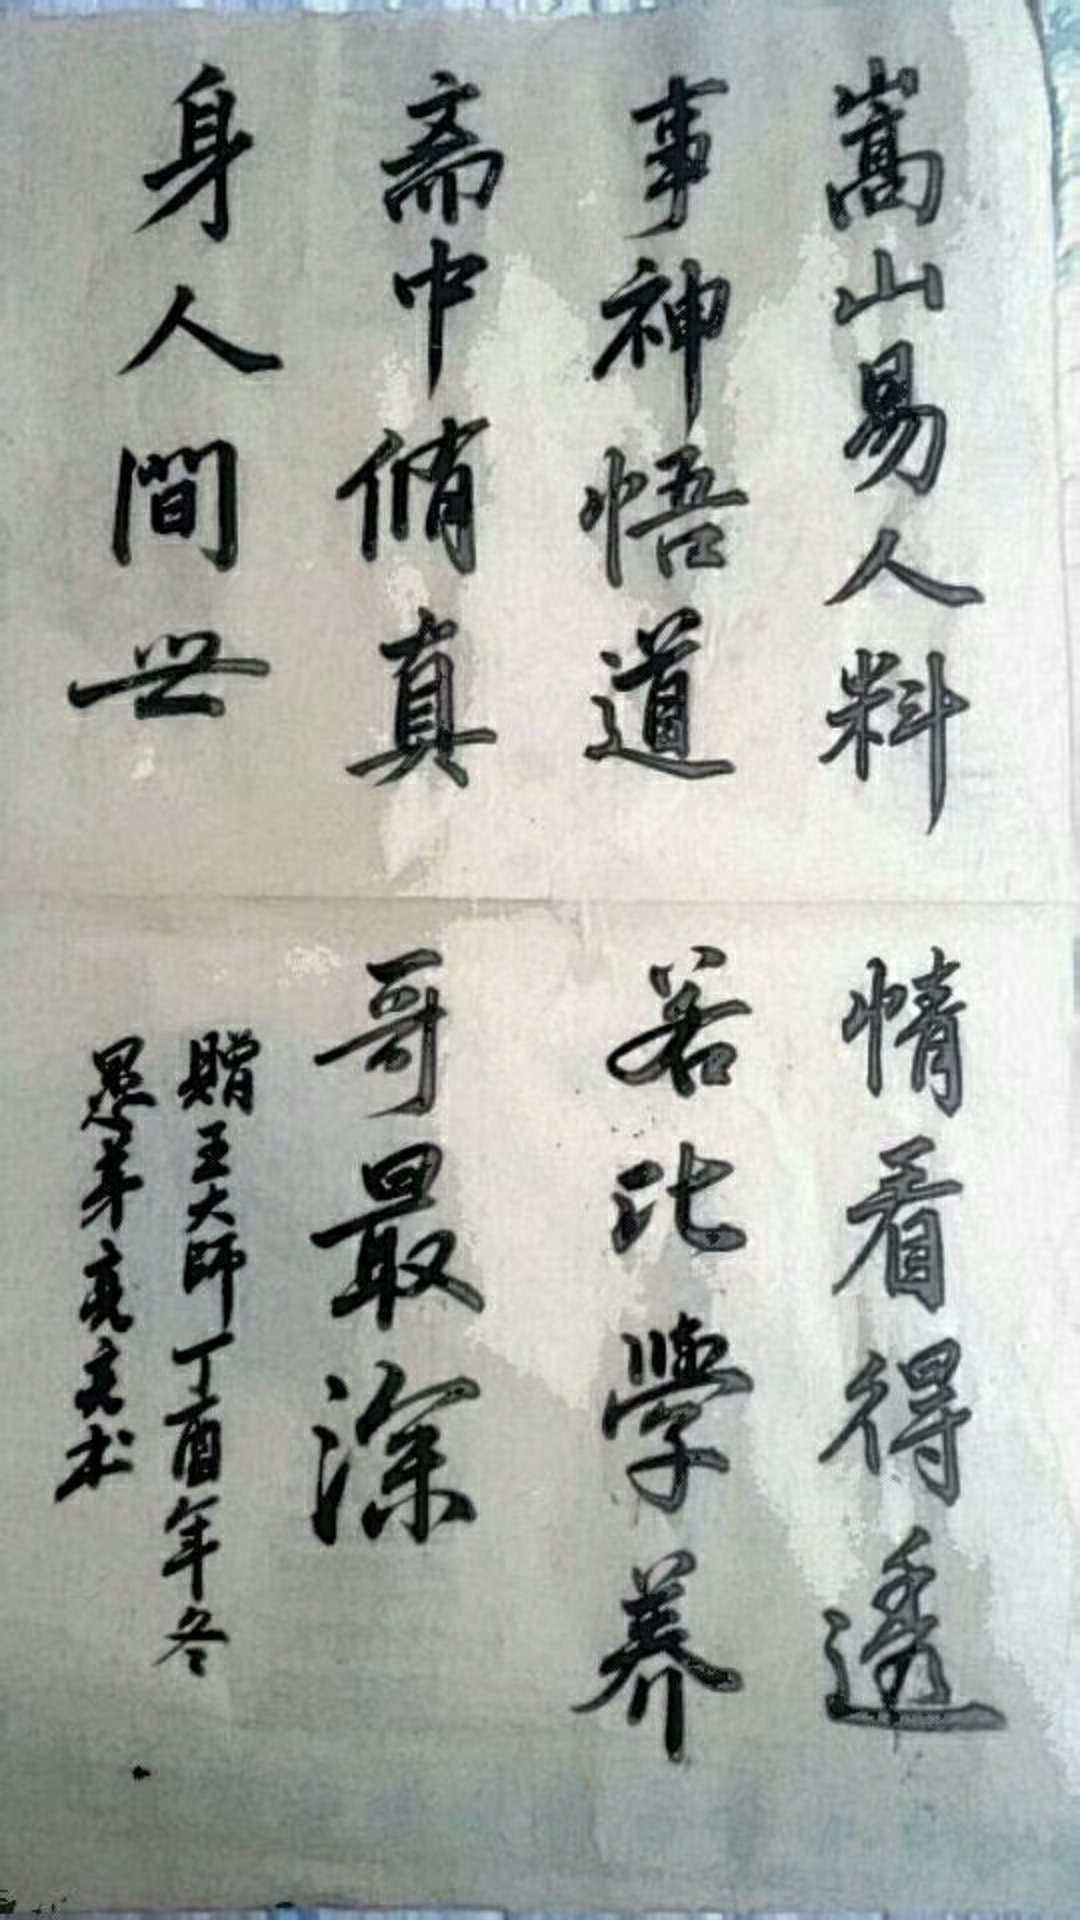 嵩山易人料
事神悟道
斋中脩真
身人間世
情看得透
若比學养
哥最深
贈王大師丁酉年冬
愚弟亮亮术